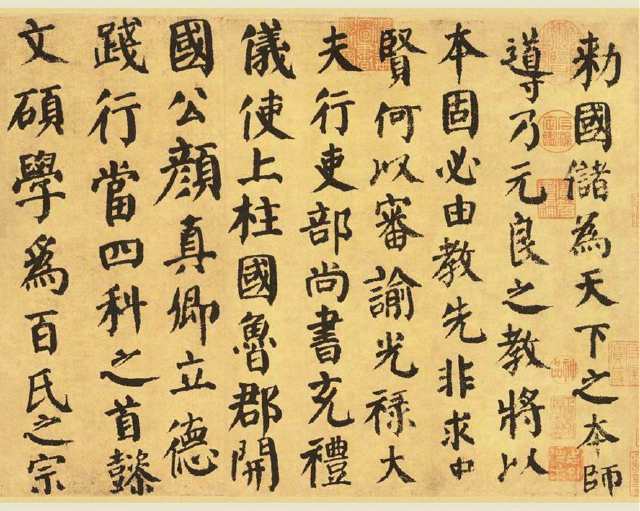 勅國儲為天下之本師
導乃元良之教將以
本固必由教先非求中
賢何以審諭光祿大
夫行吏部尚書充禮
儀使上柱國魯郡開
國公顏真卿立德
踐行當四科之首懿
文碩學為百氏之宗